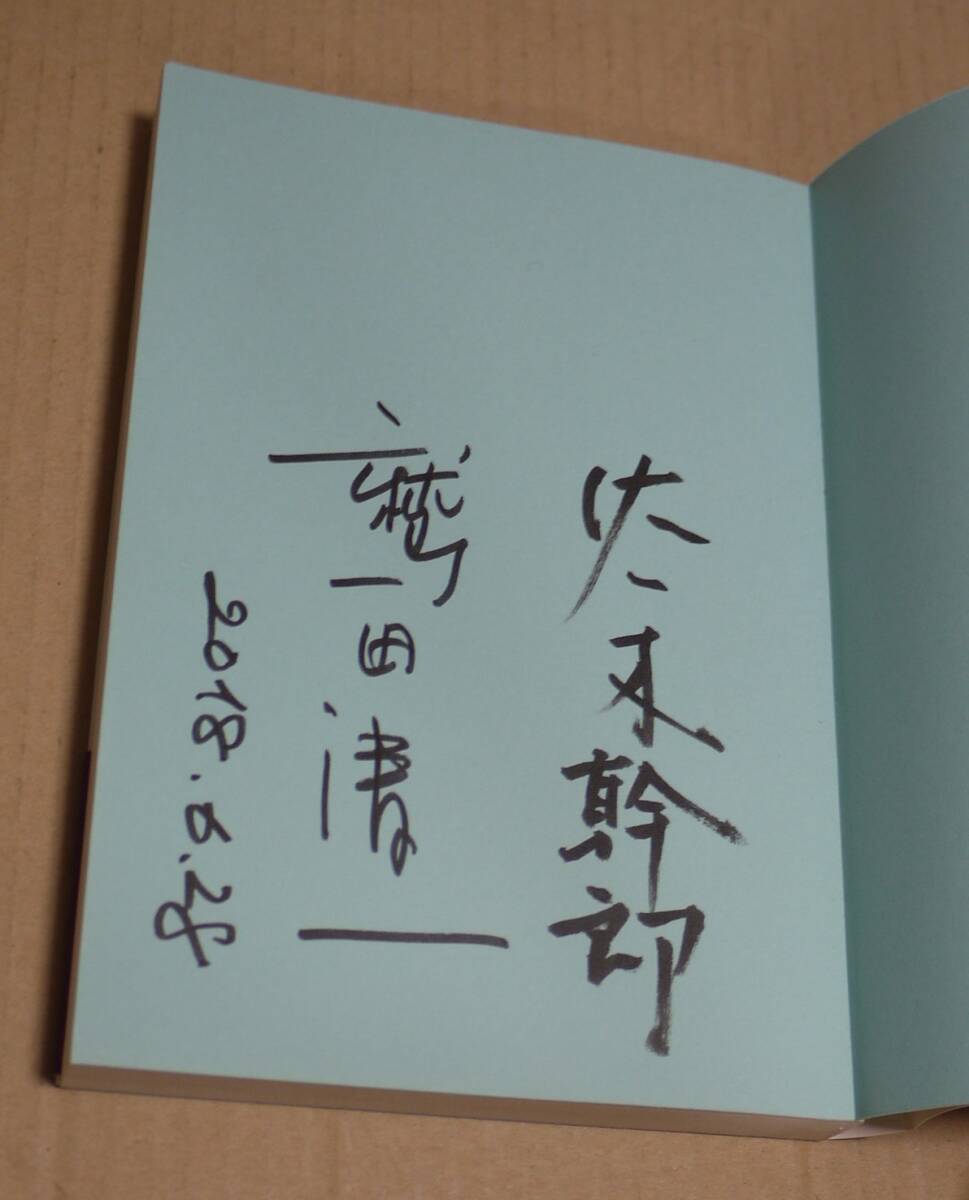 佐々木幹郎
鷲田清一
2018.5.28